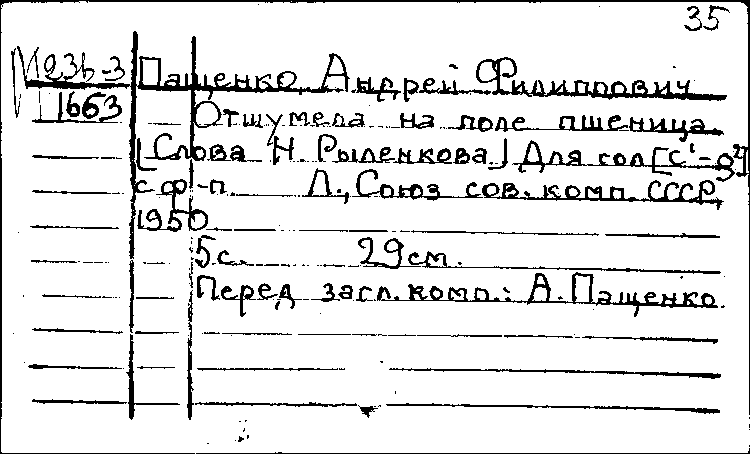 35
М 236-3 Пащенко, Андрей Филиппович
1663 Отшумела на поле пшеница.
[Слова Н. Рыленкова] Для гол [с¹-g²]
с ф-п. Л., Союз сов. комп. СССР,
1950
5 с. 29 см.
Перед загл. комп.: А. Пащенко.